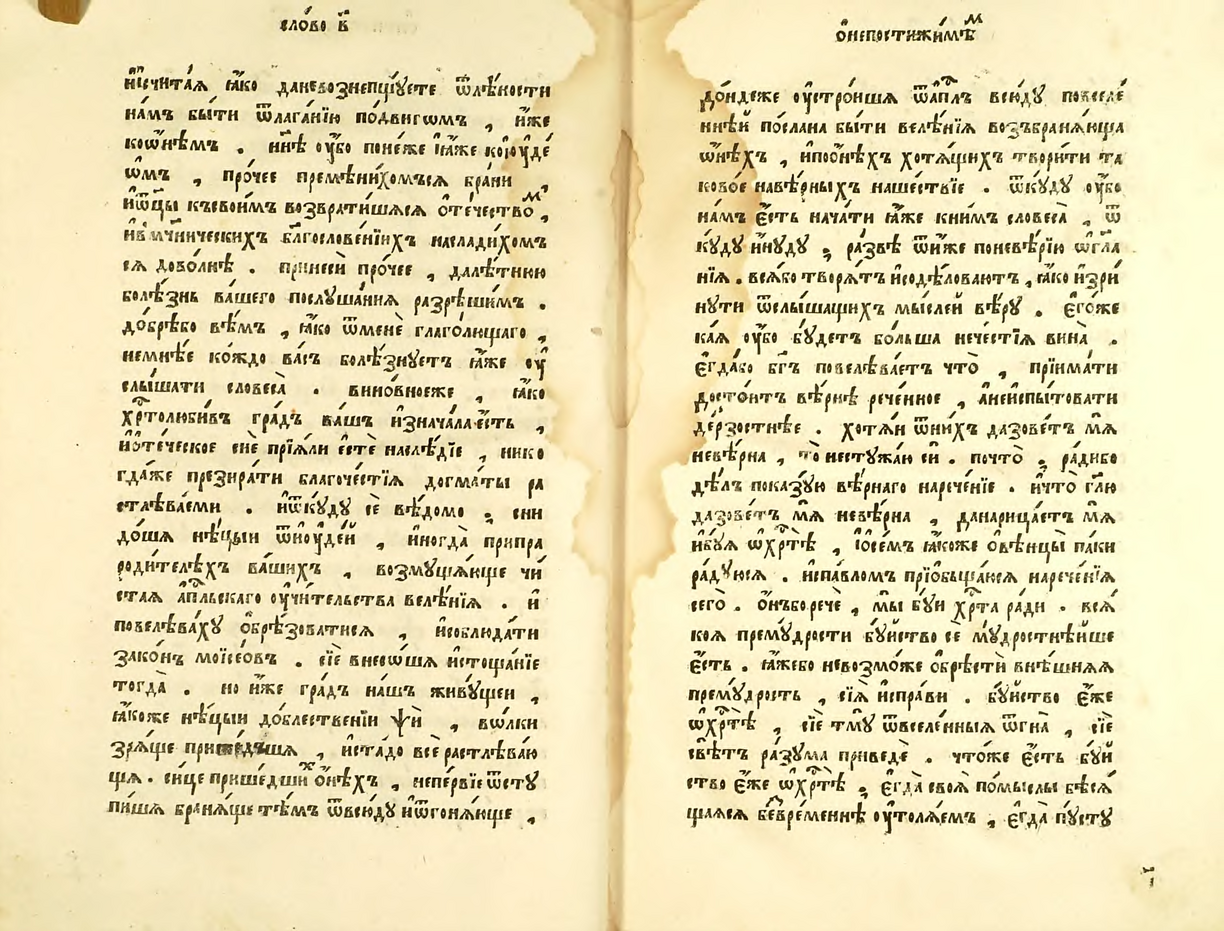 сло́во в҃
ни́счита́я ꙗ҆́ко даневознепщꙋ́ете ѿлѣ́ности
на́мъ бы́ти ѿлага́нїю по́двигѡмъ , и҆́же
коѡ҆нѣ́мъ . нн҃ѣ ᲂу҆́бо поне́же ꙗ҆́же коі҆ꙋде́
ѡмъ , про́чее премѣни́хомъся бра́ни ,
и҆ѡ҆вцы̀ къвои́мъ возврати́шяся ѻ҆те́чествоⷨ ,
и҆в мч҃ническихъ бл҃гослове́нїихъ наслади́хом
ся дово́лнѣ . принесѝ про́чее , далѣ́тнюю
болѣ́знь ва́шего послуша́ния разрѣши́мъ .
до́брѣбо вѣ́мъ , ꙗ҆́ко ѿменѐ глаго́лющаго ,
неме́нѣе ко́ждо ва́съ болѣ́знуетъ ꙗ҆́же ᲂу҆
слы́шати словеса̀ . вино́вноеже , ꙗ҆́ко
хрⷭ҇толюби́въ гра́дъ ва́шъ и҆знача́ла е҆́сть ,
и҆ѻ҆те́ческое сиѐ прїя́ли е҆стѐ наслѣ́дїе , нико
гда́же презира́ти благоче́стїя до́гматы ра
стлѣва́еми . и҆ѿкꙋ́дꙋ сѐ вѣ́домо ; сни
до́шя нѣ́цыи ѿі҆ꙋде́й , и҆ногда̀ припра
роди́телѣхъ ва́шихъ , возмꙋща́юще чи́
стая а҆пⷭ҇льскаго ᲂу҆чи́тельства велѣ́нїя . и҆
повелѣва́хꙋ ѻ҆брѣ́зоватися , и҆соблюда́ти
зако́нъ моїсе́овъ . сїѐ внесѡ́шя и҆стоща́нїе
тогда̀ . но и҆́же гра́дъ на́шъ живꙋ́щеи ,
ꙗ҆́коже нѣ́цыи до́блественїи ѱѝ , во́лки
зря́ще прише́дъшя , и҆ста́до всѐ растлѣва́ю
щя . си́це прише́дшиⷯ ѻ҆́нѣхъ , непе́рвїе ѿстꙋ
пи́шя браня́ще тѣ́мъ ѿвсю́дꙋ и҆ѿгоня́юще ,
ѻ҆непостижи́мѣⷨ
до́ндеже ᲂу҆стро́ишя ѿа҆пⷭ҇лъ всю́дꙋ повселе́
ннѣй по́слана бы́ти велѣ́нїя возъбраня́юща
ѡ҆́нѣхъ , и҆поо́нѣхъ хотя́щихъ твори́ти та
ково́е навѣ́рныхъ наше́ствїе . ѿкꙋ́дꙋ ᲂу҆́бо
на́мъ є҆́сть нача́ти ꙗ҆́же кни́мъ словеса̀ , ѿ
кꙋ́дꙋ и҆́нꙋдꙋ ; ра́звѣ ѿи҆́же поневѣ́рїю ѡ҆гла
нїя . вся́бо творя́тъ и҆содѣ́ловаютъ , ꙗ҆́ко и҆зри́
нꙋти ѿслы́шащихъ мы́слей вѣ́рꙋ . є҆гѡ́же
ка́я ᲂу҆́бо бꙋ́детъ бо́льша нече́стїя вина̀ .
є҆гда́бо бг҃ъ повелѣва́етъ что̀ , прїима́ти
досто́итъ вѣ́рнѣ рече́нное , а҆неи҆спы́товати
де́рзостнѣе . хотя́й ѿни́хъ дазове́тъ мѧ̀
невѣ́рна , то̀ нестꙋжа́ю сѝ . почто̀ ; ра́дибо
дѣ́лъ показꙋ́ю вѣ́рнаго нарече́нїе . и҆что̀ гл҃ю
дазове́тъ мѧ̀ невѣ́рна , данарица́етъ мѧ̀
и҆бꙋ́я ѡ҆хрⷭ҇тѣ̀ , і҆ѻ҆се́мъ ꙗ҆́коже ѻ҆вѣнцы̀ па́ки
ра́дꙋюся . и҆спа́вломъ прїѻбща́юся нарече́нїя
сего̀ . ѻ҆́нъбо речѐ , мы̀ бꙋ́и хрⷭ҇та̀ ра́ди . вся́
коя премꙋ́дрости бꙋ́йство сѐ мꙋ́дростнѣйше
є҆́сть . ꙗ҆́жебо невозмо́же ѻ҆брѣстѝ внѣ́шняя
премꙋ́дрость , сїя̀ и҆спра́ви . бꙋ́йство є҆́же
ѡ҆хрⷭ҇тѣ̀ , сїѐ тмꙋ̀ ѿвселе́нныя ѿгна̀ , сїѐ
свѣ́тъ ра́зꙋма приведѐ . что́же є҆́сть бꙋ́й
ство є҆́же ѡ҆хрⷭ҇тѣ̀ ; є҆гда̀ своя̀ по́мыслы бѣся́
щаяся безвре́меннѣ ᲂу҆толя́емъ , є҆гда̀ пꙋ́стꙋ
і҃